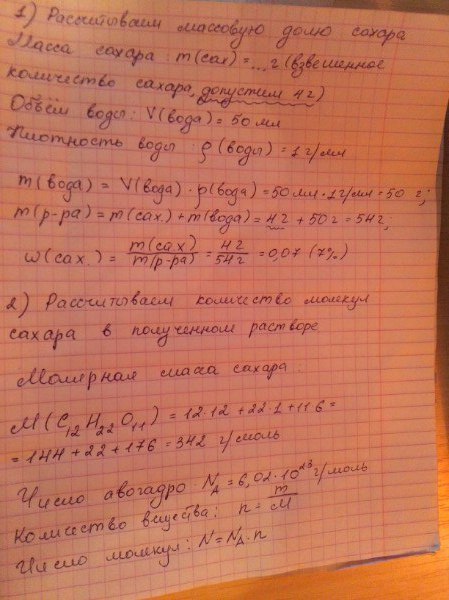 1) Рассчитываем массовую долю сахара
Масса сахара: m(сах) = ... г (взвешенное
количество сахара, допустим 4г)
Объём воды: V(вода) = 50 мл
Плотность воды: ρ(воды) = 1 г/мл
m(вода) = V(вода) · ρ(вода) = 50 мл · 1 г/мл = 50 г;
m(р-ра) = m(сах.) + m(вода) = 4г + 50г = 54г;
ω(сах.) = m(сах)/m(р-ра) = 4г/54г = 0,07 (7%)
2) Рассчитываем количество молекул
сахара в полученном растворе
Молярная масса сахара:
M(C₁₂H₂₂O₁₁) = 12·12 + 22·1 + 11·6 =
= 144 + 22 + 176 = 342 г/моль
Число авогадро: N_A = 6,02·10²³ г/моль
Количество вещества: n = m/M
Число молекул: N = N_A · n